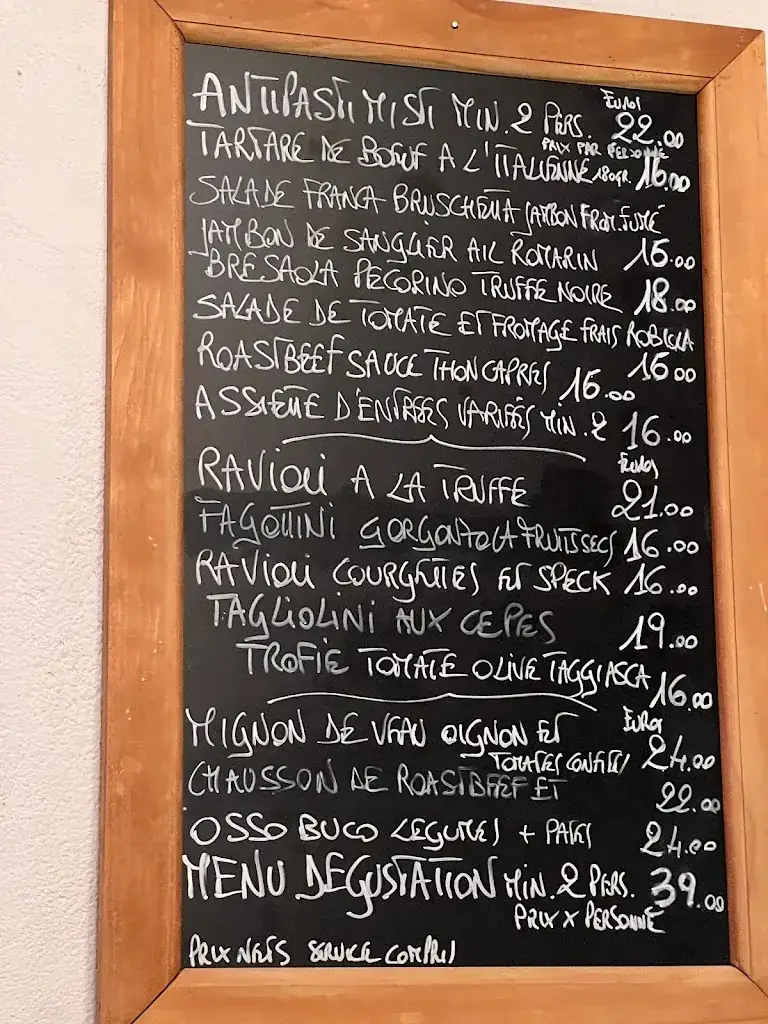 ANTIPASTI MISTI MIN. 2 PERS. EUROS 22.00
PRIX PAR PERSONNE
TARTARE DE BOEUF A L'ITALIENNE 180GR. 16.00
SALADE FRANCA BRUSCHETTA JAMBON FROM. FUMÉ
JAMBON DE SANGLIER AIL ROMARIN 16.00
BRESAOLA PECORINO TRUFFE NOIRE 18.00
SALADE DE TOMATE ET FROMAGE FRAIS ROBIOLA
16.00
ROASTBEEF SAUCE THON CAPRES 16.00
ASSIETTE D'ENTREES VARIÉES MIN. 2 16.00
EUROS
RAVIOLI A LA TRUFFE 21.00
FAGOTTINI GORGONZOLA FRUITS SECS 16.00
RAVIOLI COURGETTES ET SPECK 16.00
TAGLIOLINI AUX CEPES 19.00
TROFIE TOMATE OLIVE TAGGIASCA 16.00
EUROS
MIGNON DE VEAU OIGNON ET
TOMATES CONFITES 24.00
CHAUSSON DE ROASTBEEF ET 22.00
OSSO BUCO LEGUMES + PATES 24.00
MENU DEGUSTATION MIN. 2 PERS. 39.00
PRIX X PERSONNE
PRIX NETS SERVICE COMPRIS